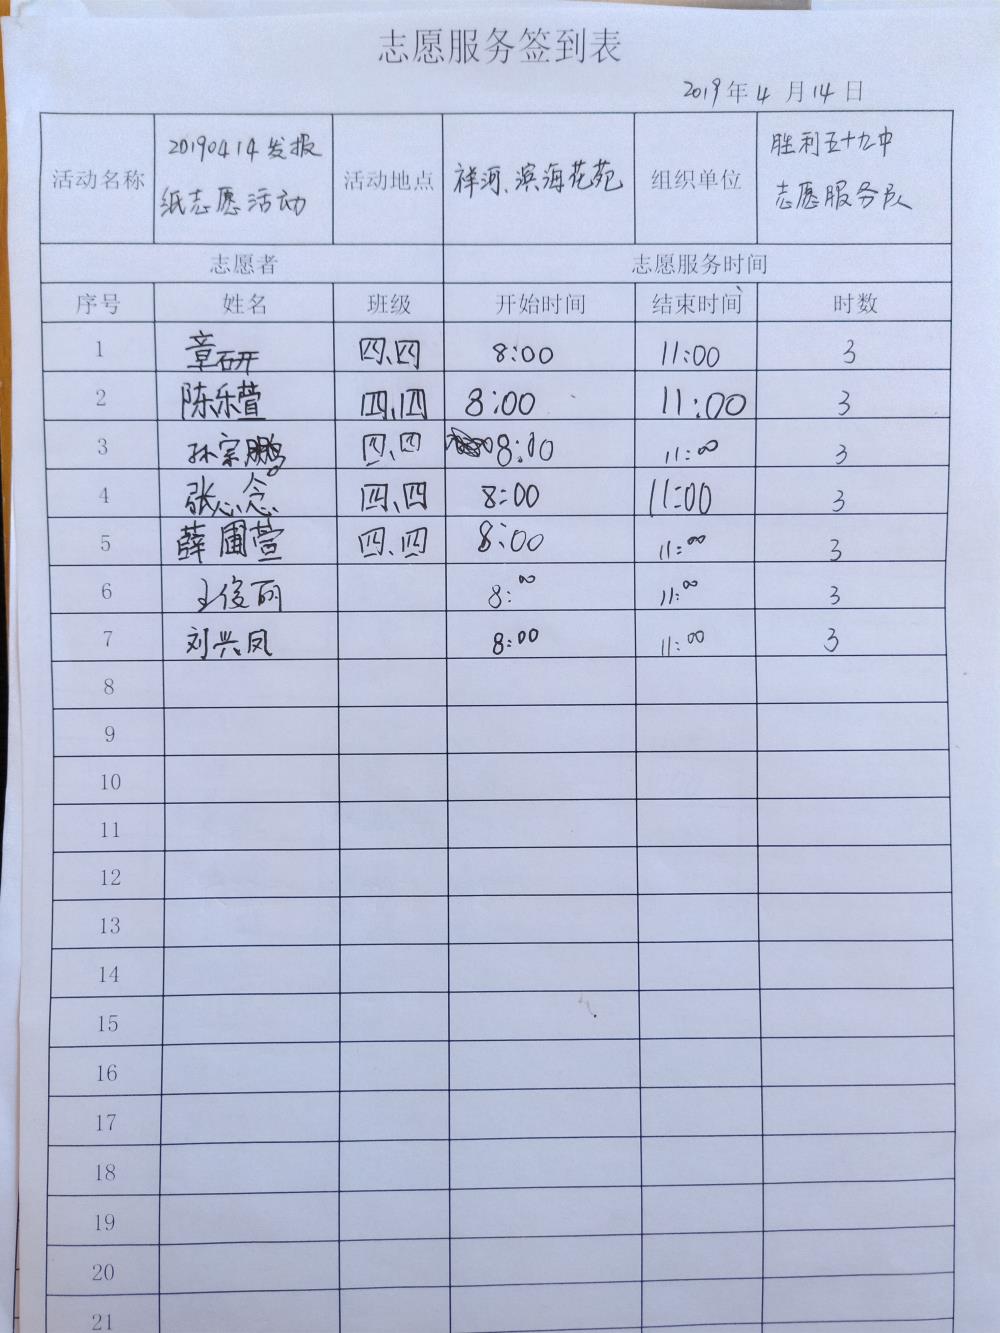 志愿服务签到表
2019年4月14日
活动名称 20190414发报纸志愿活动 活动地点 祥河、滨海花苑 组织单位 胜利五十九中志愿服务队
志愿者 志愿服务时间
序号 姓名 班级 开始时间 结束时间 时数
1 章研 四、四 8:00 11:00 3
2 陈乐萱 四、四 8:00 11:00 3
3 孙宗鹏 四、四 8:00 11:00 3
4 张心念 四、四 8:00 11:00 3
5 薛圃萱 四、四 8:00 11:00 3
6 王俊丽 8:00 11:00 3
7 刘兴凤 8:00 11:00 3
8
9
10
11
12
13
14
15
16
17
18
19
20
21